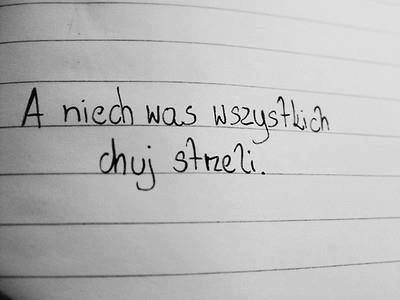 A niech was wszystkich
chuj strzeli.